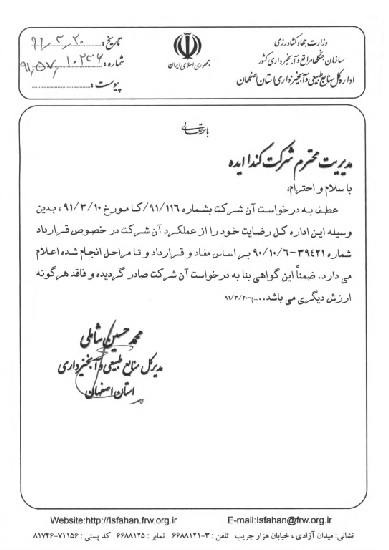 وزارت جهاد کشاورزی
سازمان جنگلها مراتع و آبخیزداری کشور
اداره کل منابع طبیعی و آبخیزداری استان اصفهان
جمهوری اسلامی ایران
تاریخ: ۹۱،۳،۲۰
شماره: ۹۱،۵۷،۱۰۲۴۶
پیوست:
باسمه تعالی
مدیریت محترم شرکت کندا ایده
با سلام و احترام؛
عطف به درخواست آن شرکت بشماره ۹۱/۱۱۶/کا مورخ ۹۱/۳/۱۰، بدین
وسیله این اداره کل رضایت خود را از عملکرد آن شرکت در خصوص قرارداد
شماره ۳۹۴۲۱-۹۰/۱۰/۶ بر اساس مفاد قرارداد و تا مراحل انجام شده اعلام
می دارد. ضمناً این گواهی بنا به درخواست آن شرکت صادر گردیده و فاقد هرگونه
ارزش دیگری می باشد.
محمد حسین شاملی
مدیرکل منابع طبیعی و آبخیزداری
استان اصفهان
Website:http://isfahan.frw.org.ir E-mail:isfahan@frw.org.ir
نشانی: میدان آزادی، خیابان هزار جریب تلفن: ۳-۶۶۸۸۱۲۱ نمابر: ۶۶۸۸۱۲۵ کد پستی: ۷۱۱۵۶-۸۱۷۴۶